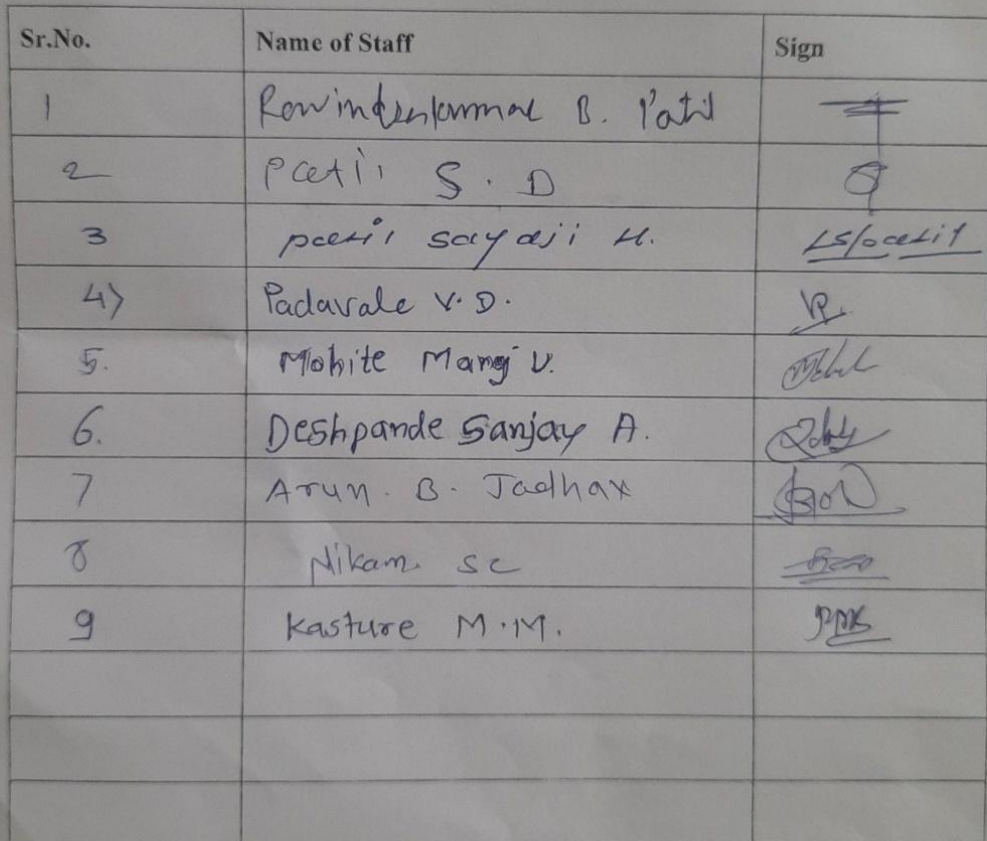 Sr.No. Name of Staff Sign
1 Rawindrakumar B. Patil
2 Patil S. D
3 patil sayaji H. LS/patil
4) Padavale V. D.
5. Mohite V.
6. Deshpande Sanjay A.
7 Arun. B. Jadhav
8 Nikam SC
9 Kasture M.M.